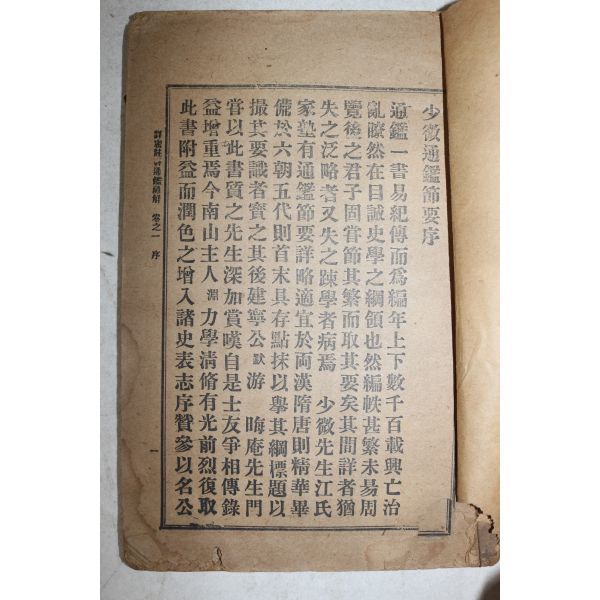 少微通鑑節要序
通鑑一書易紀傳而爲編年上下數千百載興亡治
亂瞭然在目誠史學之綱領也然編帙甚繁未易周
覽後之君子固甞節其繁而取其要矣其間詳者猶
失之泛略者又失之踈學者病焉 少微先生江氏
家塾有通鑑節要詳略適宜於兩漢隋唐則精華畢
備於六朝五代則首末具存點抹以擧其綱標題以
撮其要識者寶之其後建寧公默游 晦庵先生門
甞以此書質之先生深加賞嘆自是士友爭相傳錄
益增重焉今南山主人淵力學淸脩有光前烈復取
此書附益而潤色之增入諸史表志序贊參以名公
詳密註釋通鑑諺解 卷之一 序 一